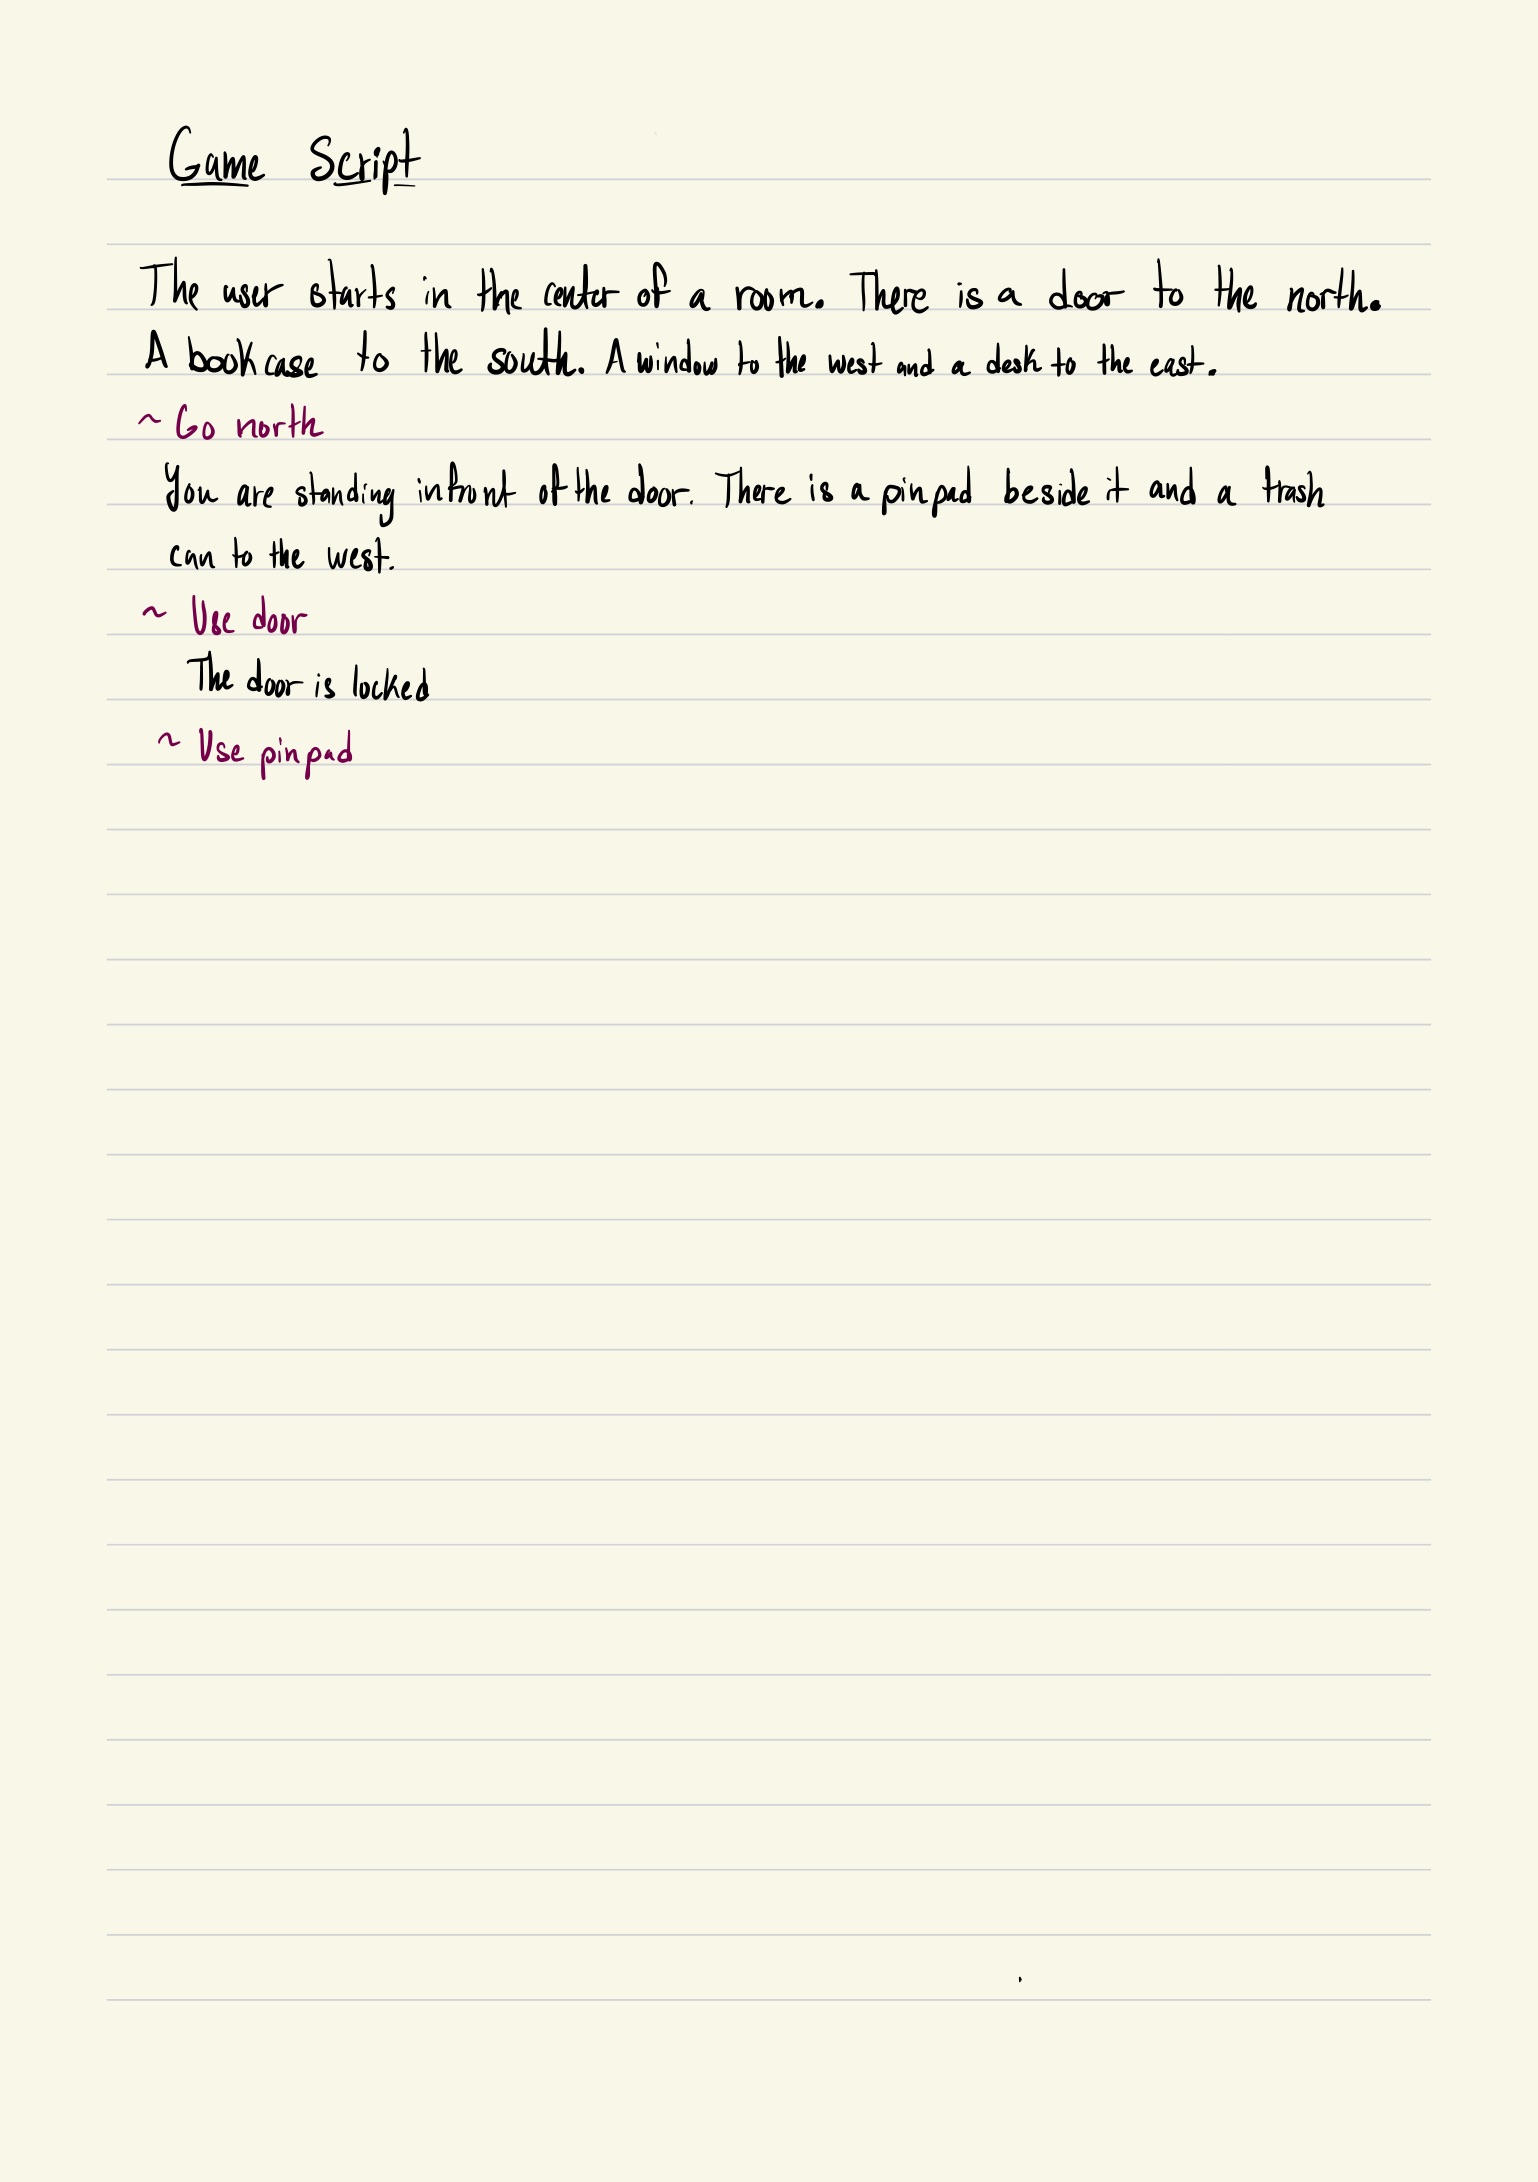 Game Script
The user starts in the center of a room. There is a door to the north.
A bookcase to the south. A window to the west and a desk to the east.
~ Go north
You are standing infront of the door. There is a pinpad beside it and a trash
can to the west.
~ Use door
The door is locked
~ Use pinpad